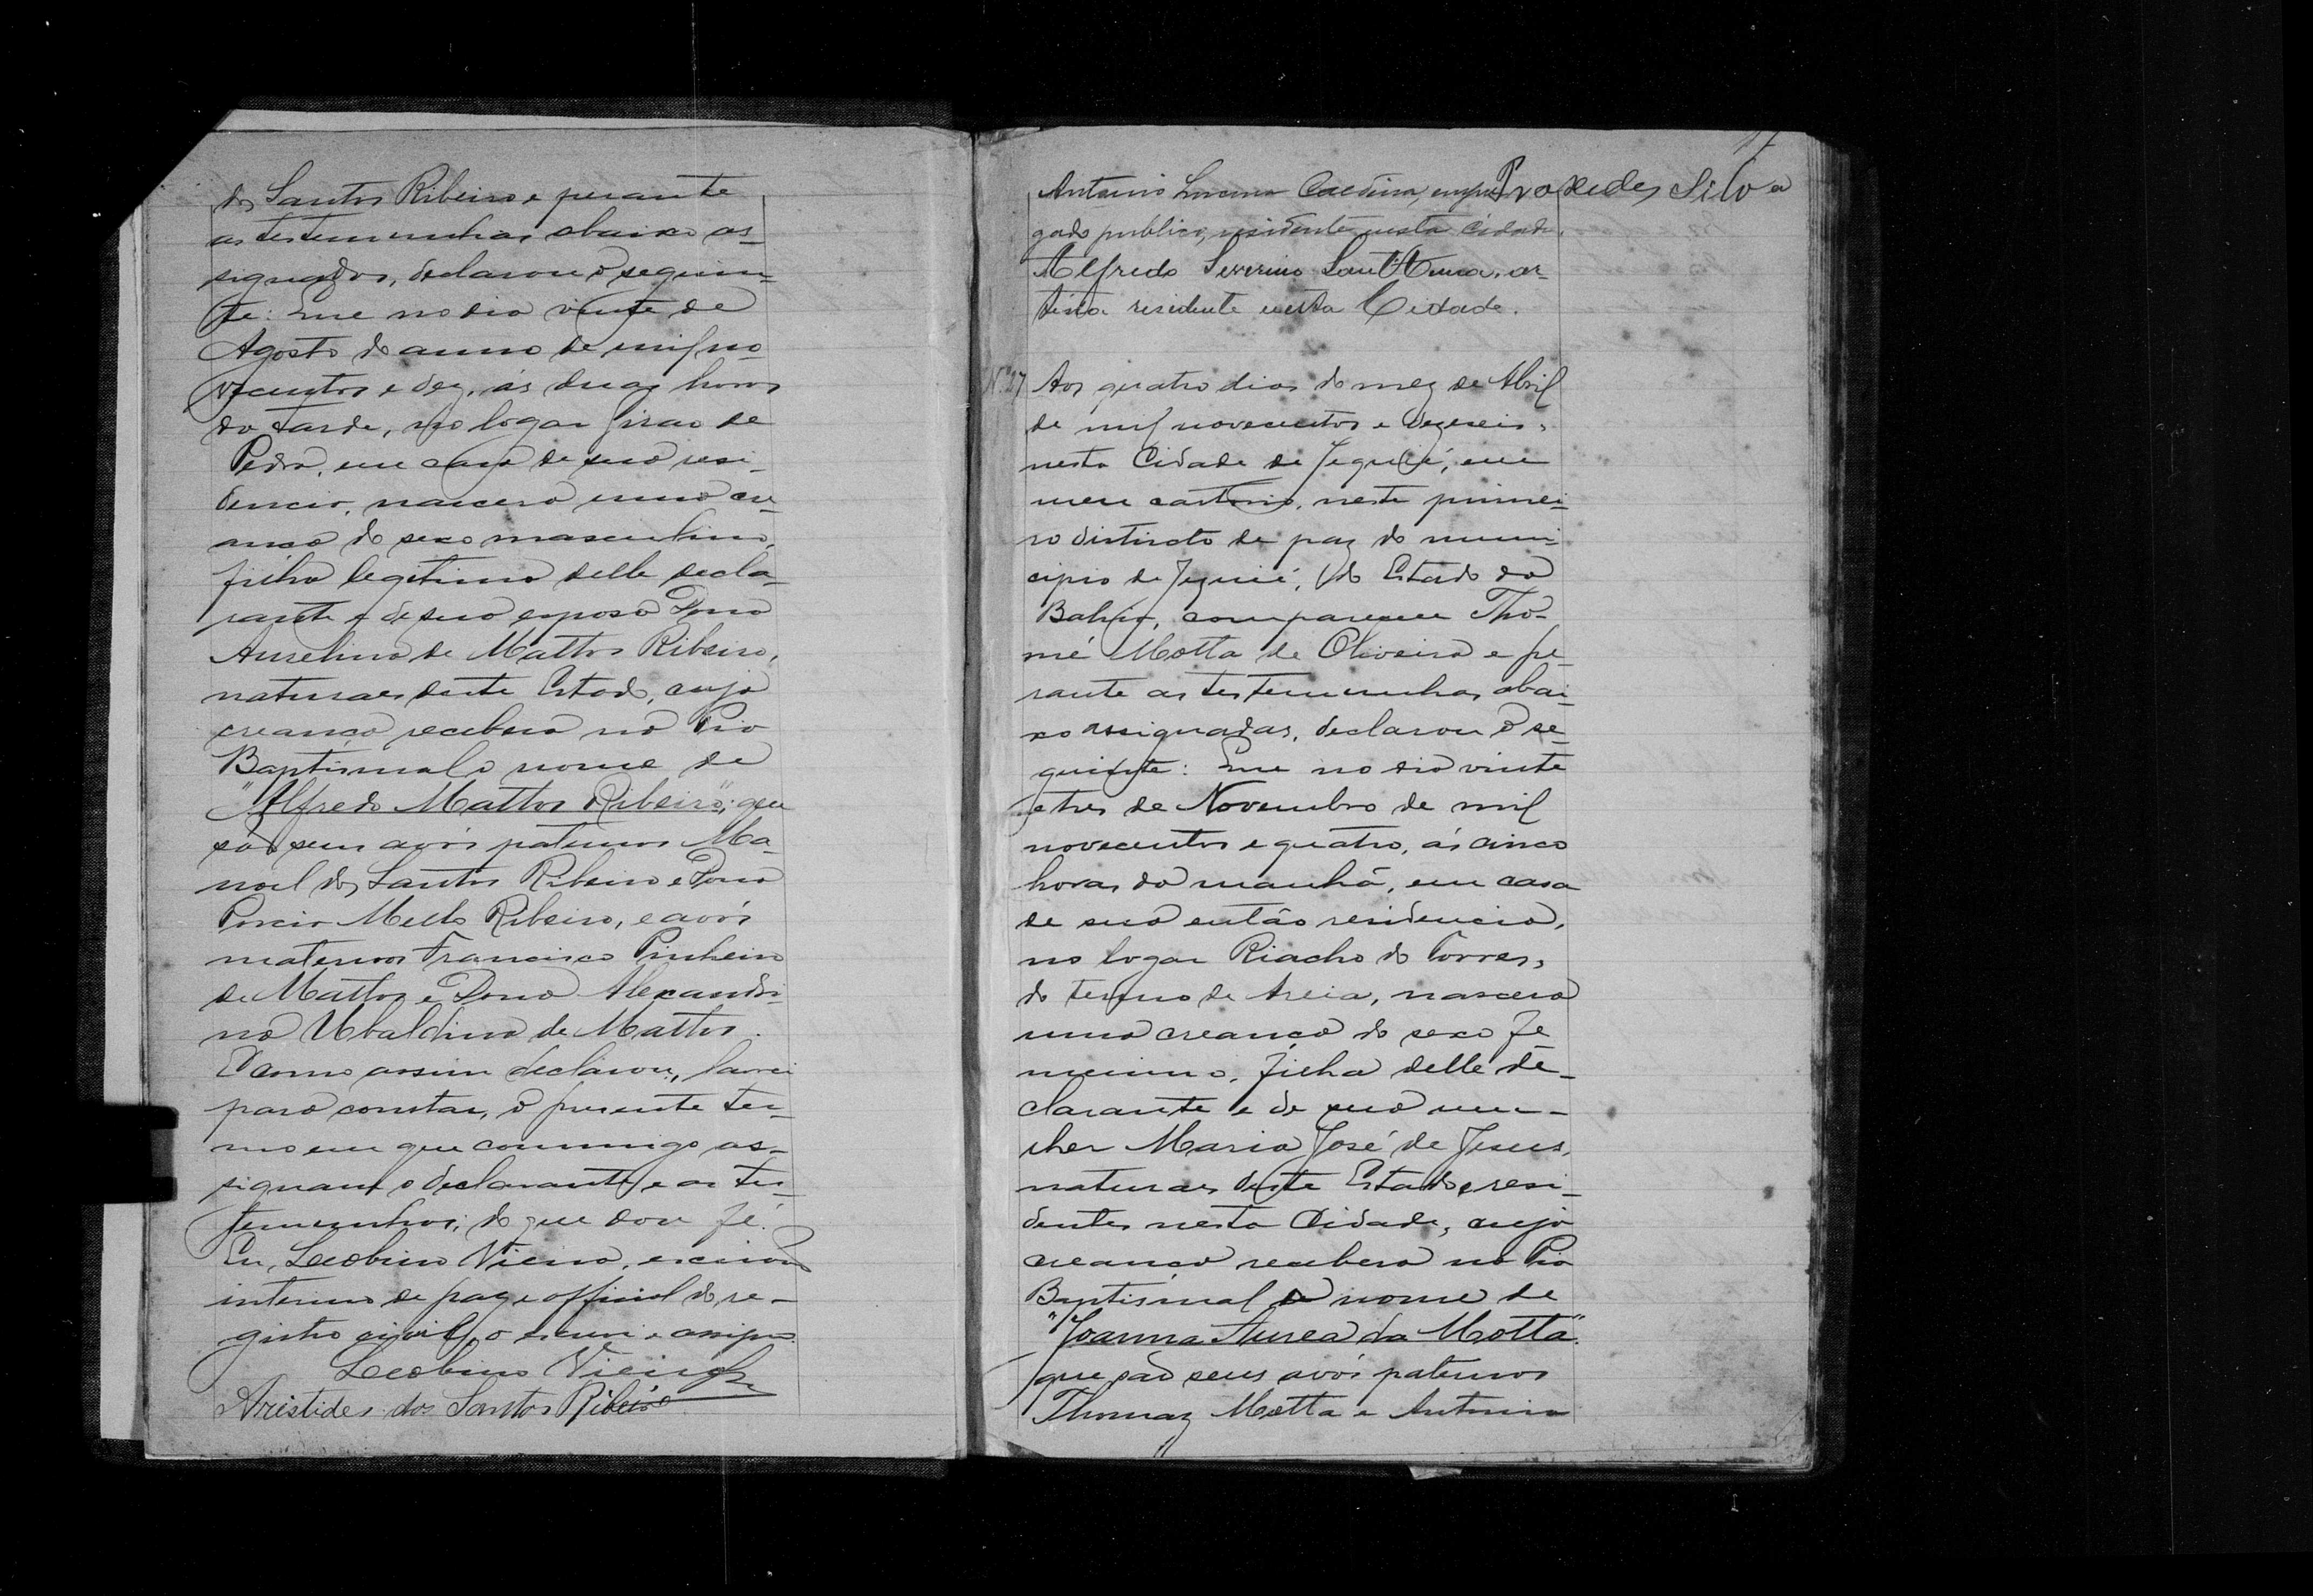 dos Santos Ribeiro e perante
as testemunhas abaixo as-
signados, declarou o seguin-
te: Que no dia vinte de
Agosto do anno de mil no-
vecentos e dez, ás duas horas
da tarde, no logar Girao de
Pedra, em casa de sua resi-
dencia, nascera uma cre-
ança do sexo masculino,
filho legitimo delle decla-
rante e de sua esposa Dona
Aurelina de Mattos Ribeiro,
naturaes deste Estado, cuja
creança recebera na Pia
Baptismal o nome de
"Alfredo Mattos Ribeiro"; que
são seus avós paternos Ma-
noel dos Santos Ribeiro e Dona
Mello Ribeiro, e avós
maternos Francisco Pinheiro
de Mattos e Dona Alexandri-
na Ubaldina de Mattos.
E como assim declarou, lavrei
para constar, o presente ter-
mo em que commigo as-
signam o declarante e as tes-
temunhas; do que dou fé.
Eu, Leobino Vieira, escrivão
interino de paz e official do re-
gistro civil, o escrevi e assigno.
Leobino Vieira
Aristides dos Santos Ribeiro
17
Antonio Lucena empre Praxedes Silva
gado publico, residente nesta Cidade.
Alfredo Severino Sant'Anna, ar-
tista residente nesta Cidade.
Nº 27 Aos quatro dias do mez de Abril
de mil novecentos e dezeseis,
nesta Cidade de Jequié, em
meu cartorio, neste primei-
ro districto de paz do muni-
cipio de Jequié, do Estado da
Bahia, compareceu Tho-
mé Motta de Oliveira e pe-
rante as testemunhas abai-
xo assignadas, declarou o se-
guinte: Que no dia vinte
e tres de Novembro de mil
novecentos e quatro, ás cinco
horas da manhã, em casa
de sua então residencia,
no logar Riacho do Torres,
do termo de Areia, nascera
uma creança do sexo fe-
menino, filha delle de-
clarante e de sua mu-
lher Maria José de Jesus,
naturaes deste Estado, resi-
dentes nesta Cidade, cuja
creança recebera na Pia
Baptismal o nome de
"Joanna Aurea da Motta".
que são seus avós paternos
Thomaz Motta e Antonia